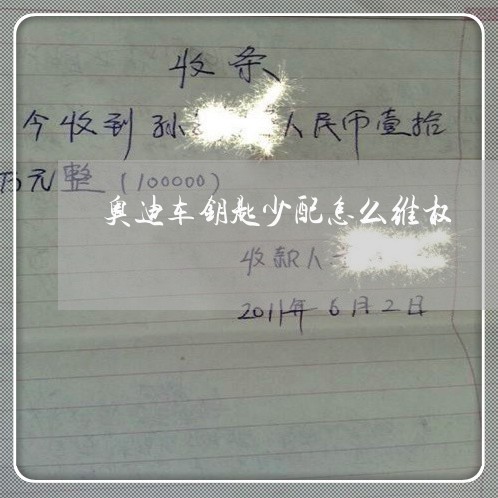 收条
今收到孙 人民币壹拾
万元整（100000）
奥迪车钥匙少配怎么维权
收款人
2011年6月2日